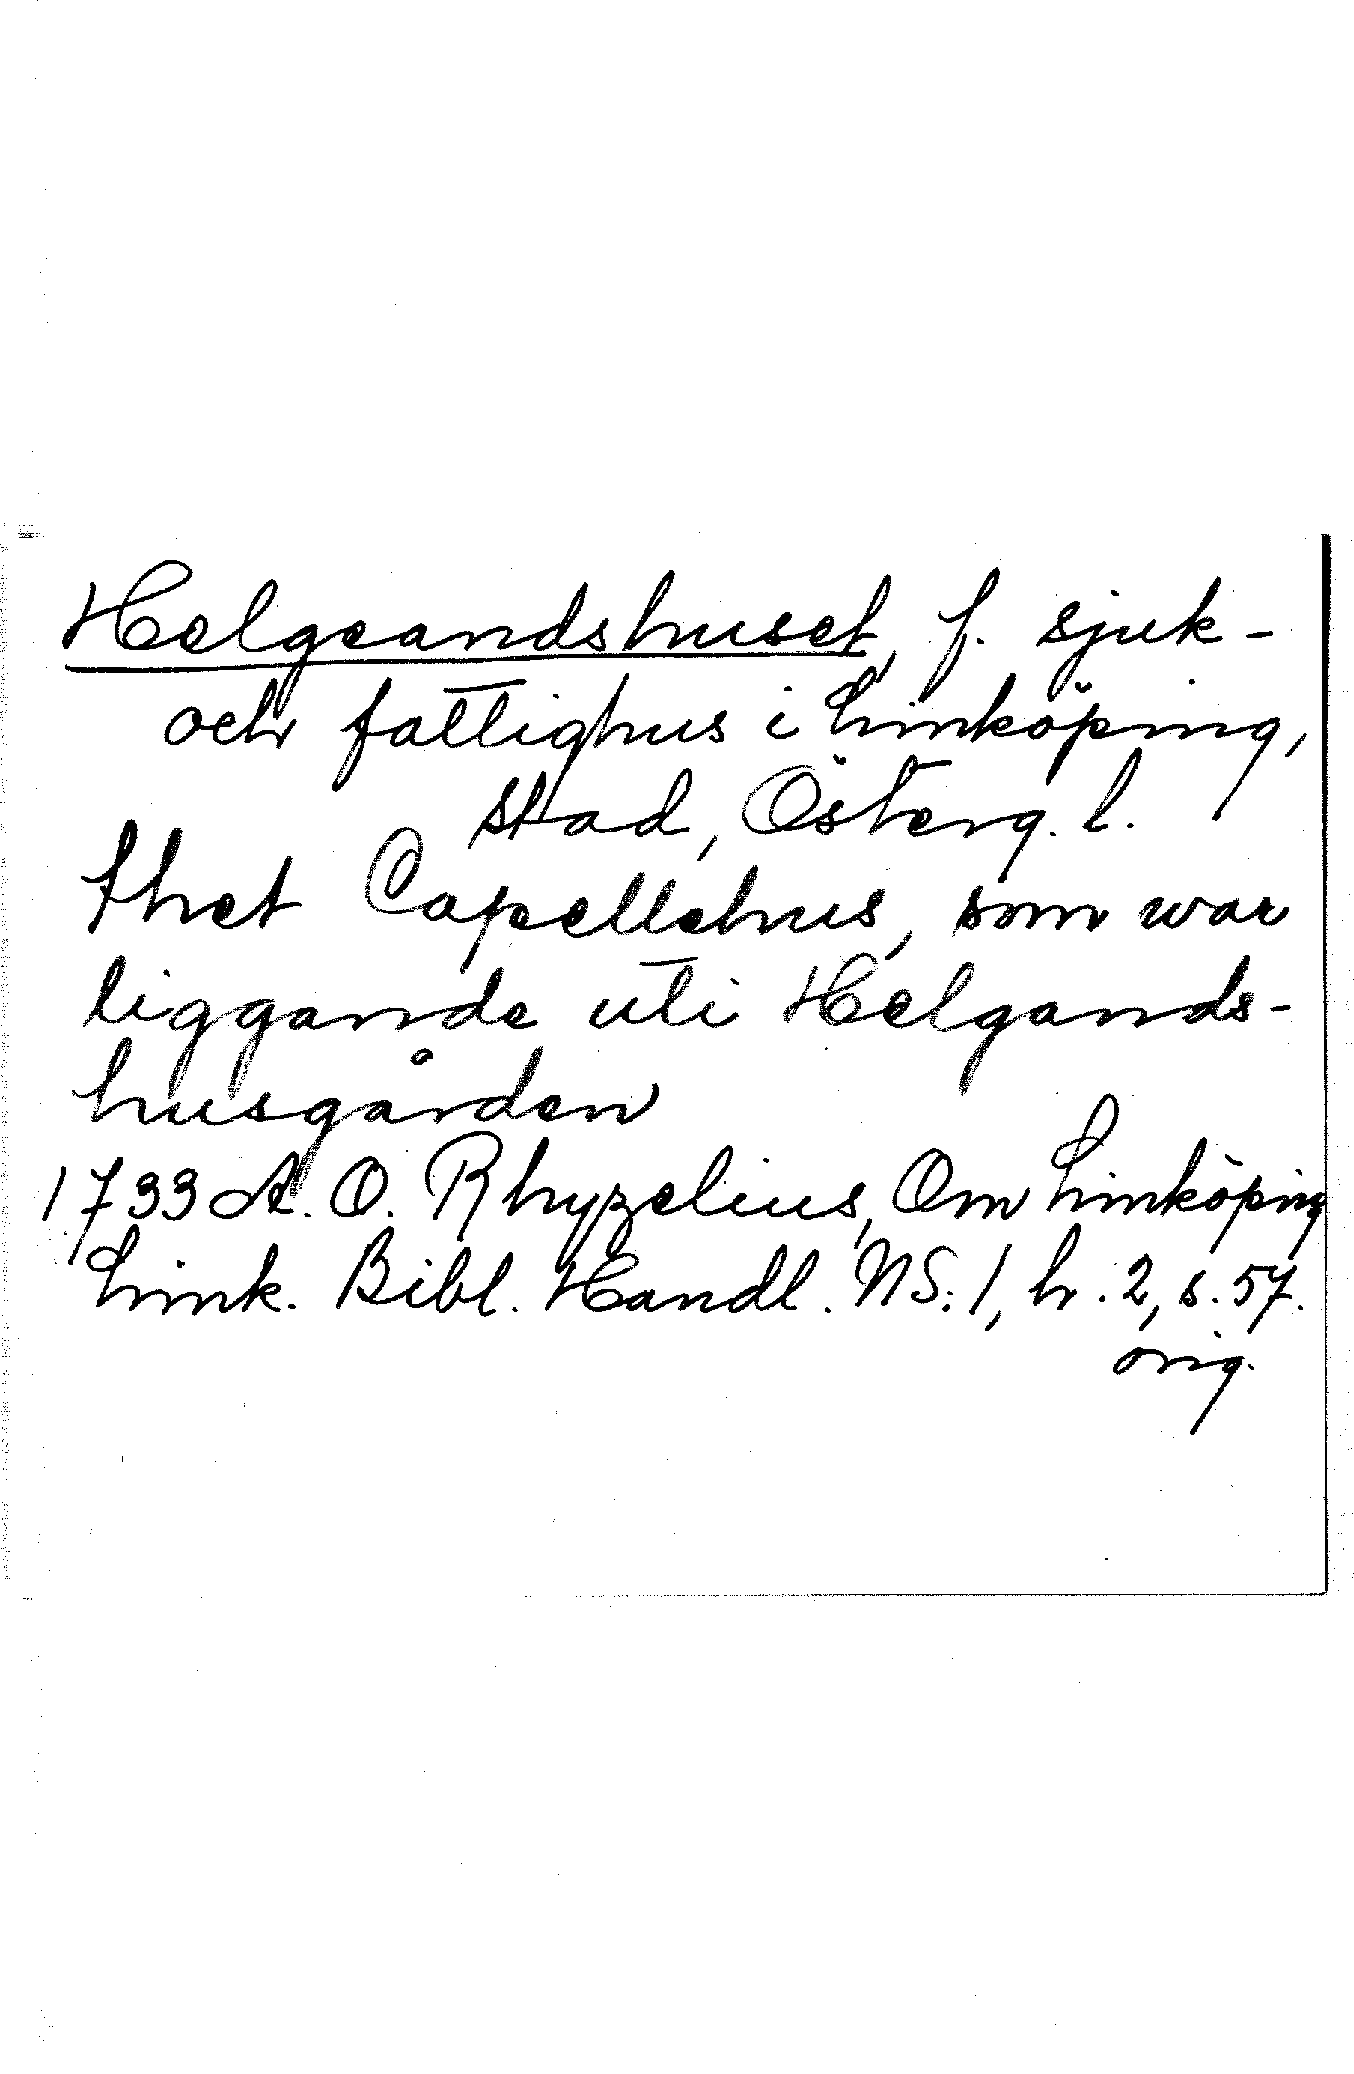 Helgeandshuset, f. sjuk-
och fattighus i Linköping,
stad, Österg. l.
thet Capellehus, som war
liggande uti Helgands-
husgården
1733 A. O. Rhyzelius, Om Linköping
Link. Bibl. Handl. NS: 1, h. 2, s. 57.
orig.